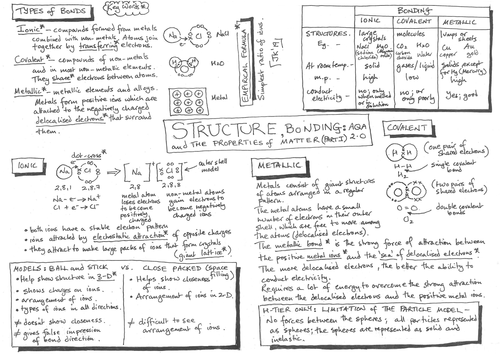 TYPES of BONDS
Key Words *
Ionic* - compounds formed from metals
combined with non-metals. Atoms join
together by transferring electrons.
Covalent* - compounds of non-metals
and in most non-metallic elements.
They share electrons between atoms.
Metallic* - metallic elements and alloys.
Metals form positive ions which are
attached to the negatively charged
delocalised electrons* that surround
them.
Na Cl NaCl
H H H2
Metal
EMPIRICAL FORMULA*
Simplest ratio of ions.
BONDING
IONIC COVALENT METALLIC
STRUCTURES.
Eg. -
large crystals
molecules
lumps or sheets
CO2 H2O
Cu Au
copper gold
At room temp. -
solid
gases/liquid
m.p. -
high
low
high
conduct electricity -
no; or only poorly
Yes; good
STRUCTURE, BONDING: AQA
and THE PROPERTIES of MATTER (PART 1) 2.0
IONIC
dot-cross*
outer shell model
Na Cl
2,8,1 2,8,7
2,8 2,8,8
Na - e → Na+
Cl + e → Cl-
metal atom
loses electrons
to become
positively
charged
non-metal atoms
gain electrons
to become
negatively
charged ions
• both ions have a stable electron pattern
• ions attracted by electrostatic attraction* of opposite charges
• they attract to make large packs of ions that form crystals
(giant lattice*)
MODELS: BALL and STICK vs. CLOSE PACKED (space filling)
• Help show structure in 3-D*
• shows charges on ions.
• arrangement of ions.
• types of ions in all directions.
≠ doesn't show closeness.
≠ gives false impression
of bond direction.
• Helps show closeness
of ions.
• Arrangement of ions in 2-D.
≠ difficult to see
arrangement of ions.
COVALENT
H H
(one pair of
shared electrons)
H-H
single covalent
bond
(two pairs of
shared electrons)
O=O
O2
double covalent
bond
METALLIC
Metals consist of giant structures
of atoms arranged in a regular
pattern.
The metal atoms have a small
number of electrons in their outer
shell, which are free to move among
the atoms (delocalised electrons).
The metallic bond* is the strong force of attraction between
the positive metal ions and the 'sea' of delocalised electrons*
The more delocalised electrons, the better the ability to
conduct electricity.
Requires a lot of energy to overcome the strong attraction
between the delocalised electrons and the positive metal ions.
H-TIER ONLY: LIMITATION OF THE PARTICLE MODEL -
No forces between the spheres; all particles represented
as spheres; the spheres are represented as solid and
inelastic.